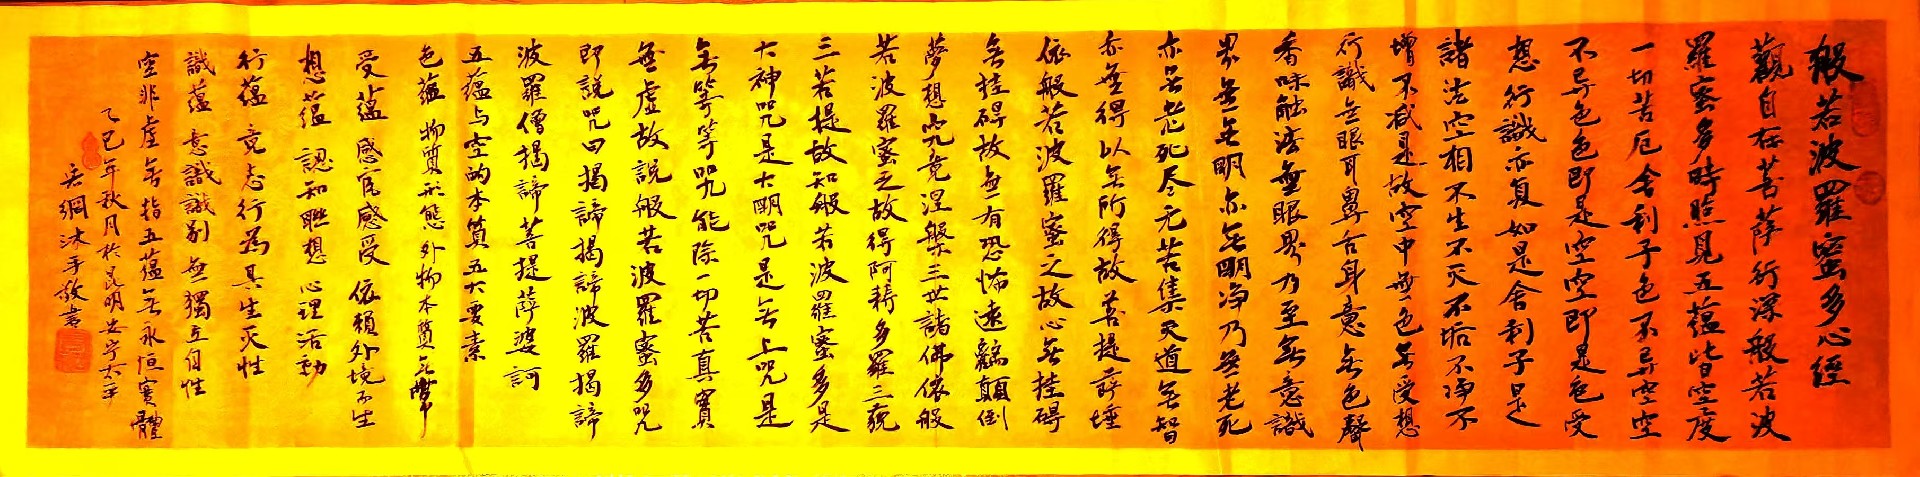 般若波羅蜜多心經
觀自在菩薩行深般若波
羅蜜多時照見五蘊皆空度
一切苦厄舍利子色不异空空
不异色色即是空空即是色受
想行識亦复如是舍利子是
諸法空相不生不灭不垢不净不
增不减是故空中無色无受想
行識無眼耳鼻舌身意无色聲
香味触法無眼界乃至无意識
界無无明亦无明净乃無老死
亦无老死尽无苦集灭道无智
亦無得以无所得故菩提薩埵
依般若波羅蜜之故心无挂碍
无挂碍故無有恐怖遠離顛倒
夢想究竟涅槃三世諸佛依般
若波羅蜜之故得阿耨多羅三藐
三若提故知般若波羅蜜多是
大神咒是大明咒是无上咒是
无等等咒能除一切苦真實
無虛故説般若波羅蜜多咒
即説咒曰揭諦揭諦波羅揭諦
波羅僧揭諦菩提薩婆訶
五蕴与空的本質五大要素
色蕴 物質形態外物本質无常
受蕴 感官感受依賴外境不生
想蕴 認知联想心理活動
行蕴 竟志行為具生灭性
識蕴 意識識别無獨立自性
空非虛无指五蕴无永恒實體
乙巳年秋月於昆明安宁太平
沐手敬書